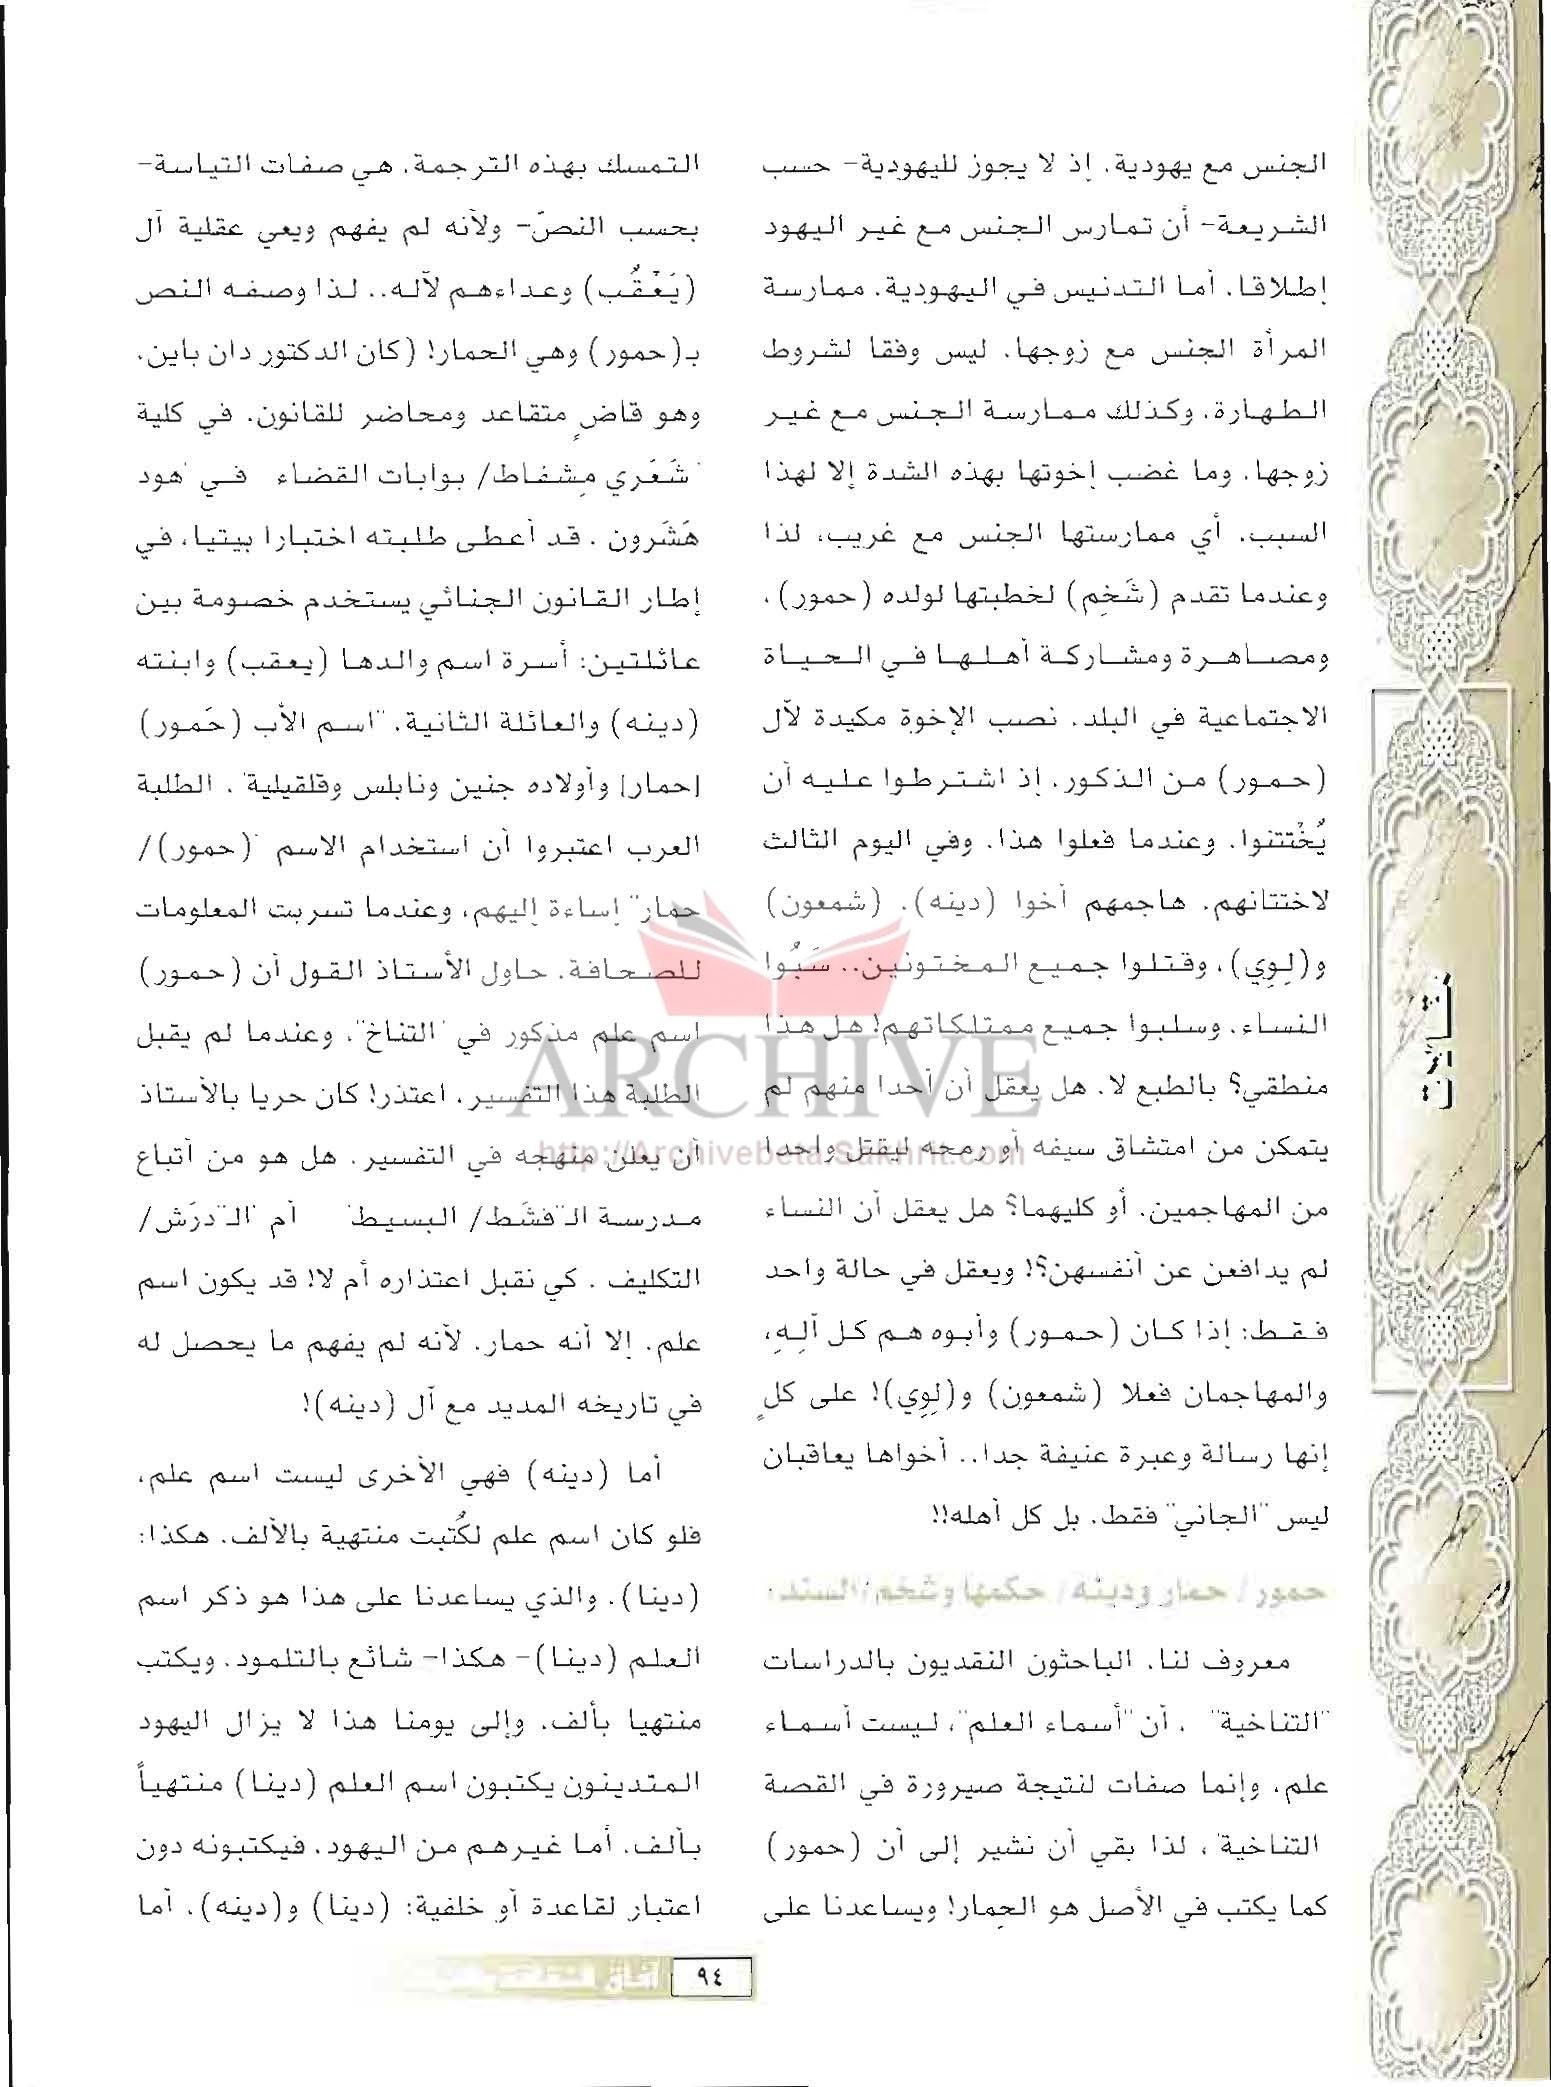 الجنس مع يهودية، إذ لا يجوز لليهودية- حسب
الشريعة- أن تمارس الجنس مع غير اليهود
إطلاقا. أما التدنيس في اليهودية، ممارسة
المرأة الجنس مع زوجها، ليس وفقا لشروط
الطهارة، وكذلك ممارسة الجنس مع غير
زوجها. وما غضب إخوتها بهذه الشدة إلا لهذا
السبب، أي ممارستها الجنس مع غريب، لذا
وعندما تقدم (شَخِم) لخطبتها لولده (حمور)،
ومصاهرة ومشاركة أهلها في الحياة
الاجتماعية في البلد، نصب الإخوة مكيدة لآل
(حمور) من الذكور، إذ اشترطوا عليه أن
يُخْتتنوا، وعندما فعلوا هذا، وفي اليوم الثالث
لاختتانهم، هاجمهم أخوا (دينه)، (شمعون)
و(لِوِي)، وقتلوا جميع المختونين.. سَبُوا
النساء، وسلبوا جميع ممتلكاتهم! هل هذا
منطقي؟ بالطبع لا، هل يعقل أن أحدا منهم لم
يتمكن من امتشاق سيفه أو رمحه ليقتل واحدا
من المهاجمين، أو كليهما؟ هل يعقل أن النساء
لم يدافعن عن أنفسهن؟! ويعقل في حالة واحد
فقط: إذا كان (حمور) وأبوه هم كل آلِهِ،
والمهاجمان فعلا (شمعون) و(لِوِي)! على كلٍ
إنها رسالة وعبرة عنيفة جدا.. أخواها يعاقبان
ليس "الجاني" فقط، بل كل أهله!!
حمور/ حمار ودينه/ حكمها وشخم/ السند:
معروف لنا، الباحثون النقديون بالدراسات
"التناخية"، أن "أسماء العلم"، ليست أسماء
علم، وإنما صفات لنتيجة صيرورة في القصة
التناخية"، لذا بقي أن نشير إلى أن (حمور)
كما يكتب في الأصل هو الحِمار! ويساعدنا على
التمسك بهذه الترجمة، هي صفات التياسة-
بحسب النصّ- ولأنه لم يفهم ويعي عقلية آل
(يَعْقُب) وعداءهم لآله.. لذا وصفه النص
بـ(حمور) وهي الحمار! (كان الدكتور دان باين،
وهو قاضٍ متقاعد ومحاضر للقانون، في كلية
"شَعَري مِشفاط/ بوابات القضاء" في "هود
هَشَرون"، قد أعطى طلبته اختبارا بيتيا، في
إطار القانون الجنائي يستخدم خصومة بين
عائلتين: أسرة اسم والدها (يعقب) وابنته
(دينه) والعائلة الثانية، "اسم الأب (حَمور)
[حمار] وأولاده جنين ونابلس وقلقيلية". الطلبة
العرب اعتبروا أن استخدام الاسم "(حمور)/
حمار" إساءة إليهم، وعندما تسربت المعلومات
للصحافة، حاول الأستاذ القول أن (حمور)
اسم علم مذكور في "التناخ"، وعندما لم يقبل
الطلبة هذا التفسير، اعتذر! كان حريا بالأستاذ
أن يعلن منهجه في التفسير، هل هو من أتباع
مدرسة الـ"فشَط/ البسيط" أم "الـ"درَش/
التكليف"، كي نقبل اعتذاره أم لا! قد يكون اسم
علم، إلا أنه حمار، لأنه لم يفهم ما يحصل له
في تاريخه المديد مع آل (دينه)!
أما (دينه) فهي الأخرى ليست اسم علم،
فلو كان اسم علم لكُتبت منتهية بالألف، هكذا:
(دينا)، والذي يساعدنا على هذا هو ذكر اسم
العلم (دينا)- هكذا- شائع بالتلمود، ويكتب
منتهيا بألف، وإلى يومنا هذا لا يزال اليهود
المتدينون يكتبون اسم العلم (دينا) منتهياً
بألف، أما غيرهم من اليهود، فيكتبونه دون
اعتبار لقاعدة أو خلفية: (دينا) و(دينه). أما
ARCHIVE
http://Archivebeta.Sakhrit.com
٩٤